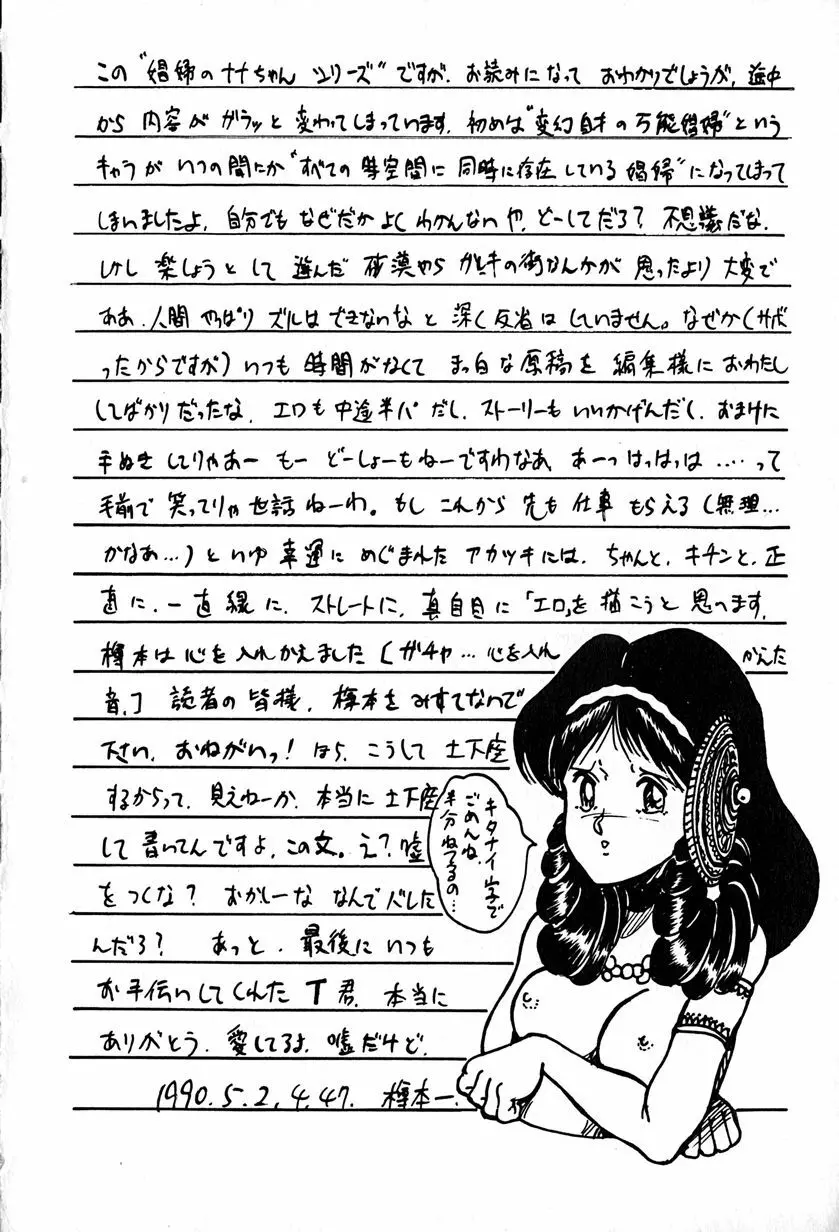 この"娼婦のナナちゃんシリーズ"ですが、お読みになって おわかりでしょうが、途中
から 内容が ガラッと 変わってしまっています。初めは"変幻自才の万能娼婦"という
キャラが いつの間にか"すべての 時空間に 同時に存在している 娼婦"になってしまって
しまいましたよ、自分でも なぜだか よく わかんないや、どーしてだろ? 不思議だな、
しかし 楽しようと して 選んだ 砂漠やら ガレキの街なんかが 思ったより 大変で
ああ、人間 やっぱり ズルは できないな と 深く 反省は していません。なぜか(サボ
ったからですが)いつも 時間がなくて まっ白な原稿を 編集様に おわたし
してばかりだったな、エロも 中途半パ だし、ストーリーも いいかげんだし、おまけに
手ぬき してりゃあー もー どーしょーもねーですわなあ、あーっはっはっは ‥‥って
手前で 笑ってりゃ 世話 ねーわ。もし これから 先も 仕事 もらえる(無理…
かなあ…)といゆ 幸運に めぐまれた アカツキには、ちゃんと、キチンと、正
直に、一直線に、ストレートに、真自目に「エロ」を 描こうと 思へます。
樽本は 心を 入れかえました [ガチャ… 心を入れ かえた
音、] 読者の 皆様、樽本を みすてないで
下さい、おねがいっ! ほら、こうして 土下座
するからって、見えねーか、本当に 土下座
して 書いてんですよ、この文。え?嘘
を つくな? おかしーな なんで バレた
んだろ? あっと、最後に いつも
お手伝いしてくれた T君、本当に
ありがとう、愛してるよ、嘘だけど、
1990.5.2.4.47. 樽本一.
キタナイ字で
ごめんね、
半分ねてるの…